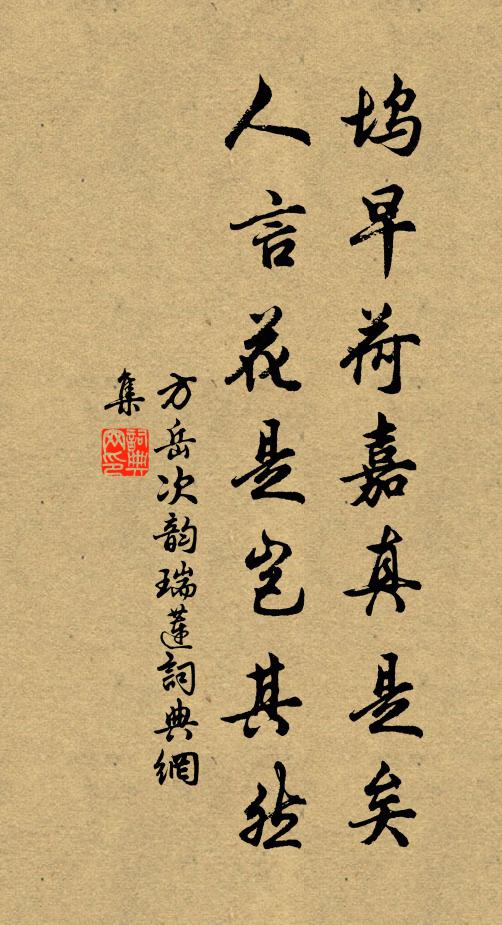 坞早荷嘉真是矣
人言花是岂其然
方岳次韵瑞莲詞典網
集
詞典網印